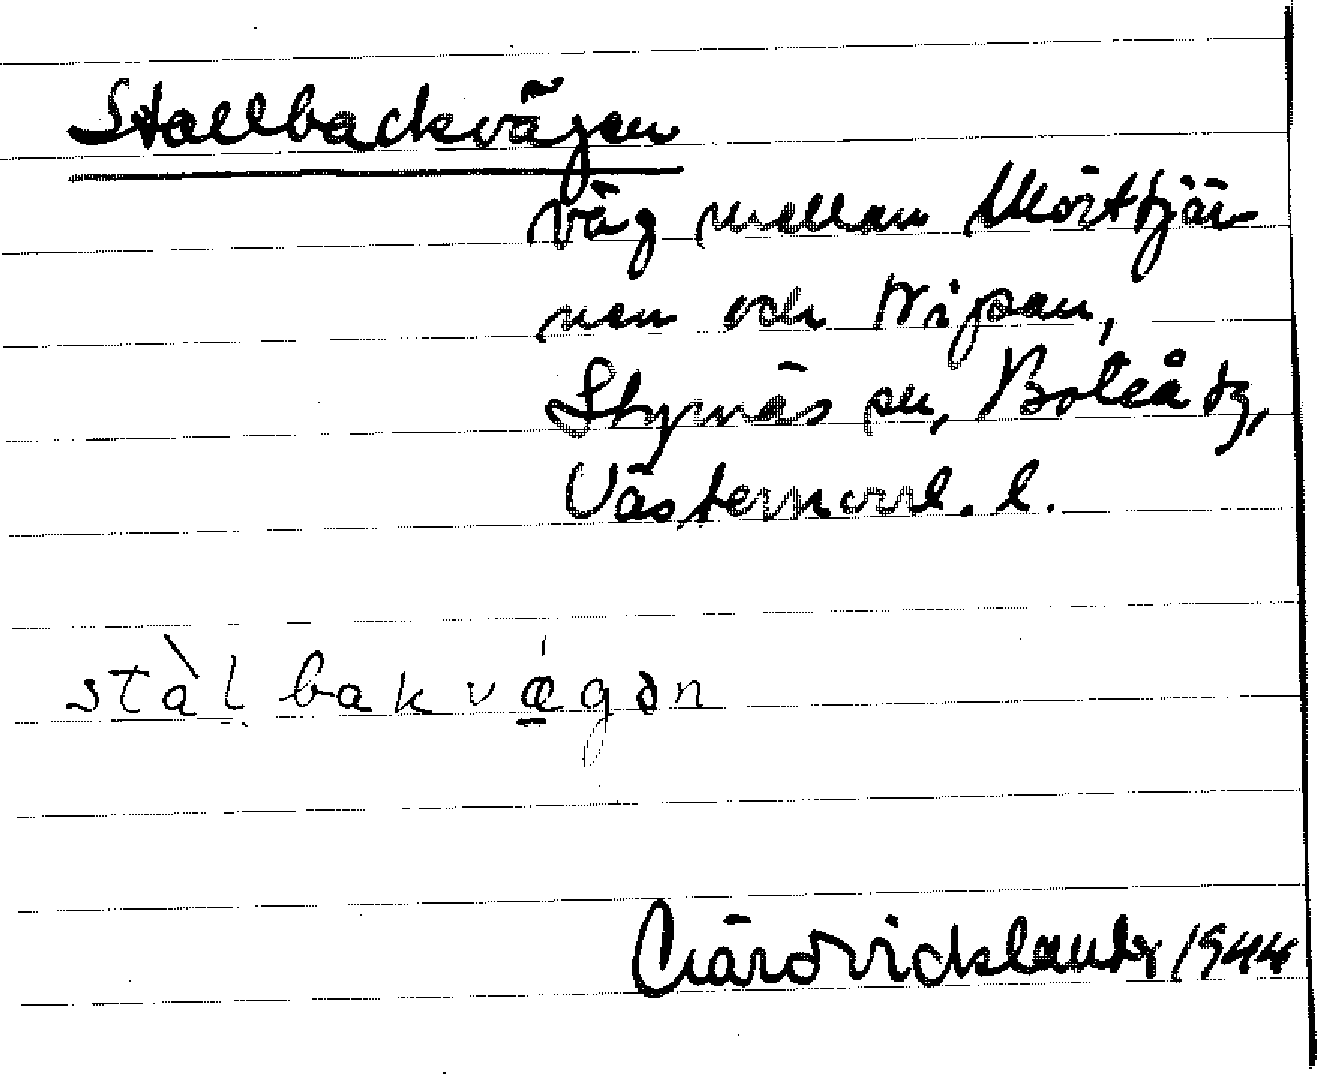 Stallbackvägen
väg mellan Mörttjär-
nen och Nipan,
Styrnäs sn, Boteå tg,
Västernorrl. l.
stàl bak vǽgən
1944